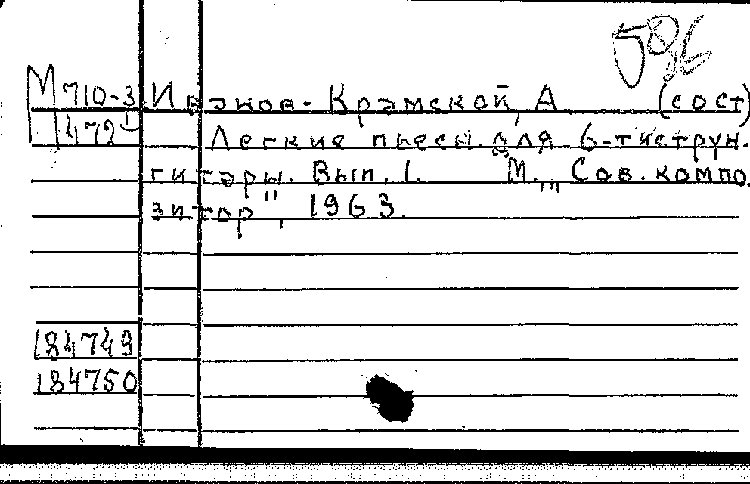 586
М 710-3 Иванов-Крамской, А (сост)
1472 Легкие пьесы для 6-тиструн.
гитары. Вып. 1. М., „Сов. компо
зитор", 1963.
184749
184750